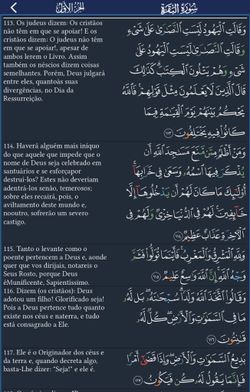 سورة البقرة
الجزء الأول
113. Os judeus dizem: Os cristãos
não têm em que se apoiar! E os
cristãos dizem: O judeus não têm
em que se apoiar!, apesar de
ambos lerem o Livro. Assim
também os néscios dizem coisas
semelhantes. Porém, Deus julgará
entre eles, quanto às suas
divergências, no Dia da
Ressurreição.
وَقَالَتِ ٱلْيَهُودُ لَيْسَتِ ٱلنَّصَٰرَىٰ عَلَىٰ شَىْءٍ
وَقَالَتِ ٱلنَّصَٰرَىٰ لَيْسَتِ ٱلْيَهُودُ عَلَىٰ
شَىْءٍ وَهُمْ يَتْلُونَ ٱلْكِتَٰبَ كَذَٰلِكَ
قَالَ ٱلَّذِينَ لَا يَعْلَمُونَ مِثْلَ قَوْلِهِمْ فَٱللَّهُ
يَحْكُمُ بَيْنَهُمْ يَوْمَ ٱلْقِيَٰمَةِ فِيمَا
كَانُوا۟ فِيهِ يَخْتَلِفُونَ ١١٣
114. Haverá alguém mais iníquo
do que aquele que impede que o
nome de Deus seja celebrado em
santuários e se esforçapor
destruí-los? Estes não deveriam
adentrá-los senão, temerosos;
sobre eles recairá, pois, o
aviltamento deste mundo e,
nooutro, sofrerão um severo
castigo.
وَمَنْ أَظْلَمُ مِمَّن مَّنَعَ مَسَٰجِدَ ٱللَّهِ أَن
يُذْكَرَ فِيهَا ٱسْمُهُۥ وَسَعَىٰ فِى خَرَابِهَآ
أُو۟لَٰٓئِكَ مَا كَانَ لَهُمْ أَن يَدْخُلُوهَآ إِلَّا
خَآئِفِينَ لَهُمْ فِى ٱلدُّنْيَا خِزْىٌ وَلَهُمْ فِى
ٱلْءَاخِرَةِ عَذَابٌ عَظِيمٌ ١١٤
115. Tanto o levante como o
poente pertencem a Deus e, aonde
quer que vos dirijais, notareis o
Seu Rosto, porque Deus
éMunificente, Sapientíssimo.
وَلِلَّهِ ٱلْمَشْرِقُ وَٱلْمَغْرِبُ فَأَيْنَمَا تُوَلُّوا۟ فَثَمَّ
وَجْهُ ٱللَّهِ إِنَّ ٱللَّهَ وَٰسِعٌ عَلِيمٌ ١١٥
116. Dizem (os cristãos): Deus
adotou um filho! Glorificado seja!
Pois a Deus pertence tudo quanto
existe nos céus e naterra, e tudo
está consagrado a Ele.
وَقَالُوا۟ ٱتَّخَذَ ٱللَّهُ وَلَدًا سُبْحَٰنَهُۥ بَل لَّهُۥ
مَا فِى ٱلسَّمَٰوَٰتِ وَٱلْأَرْضِ كُلٌّ لَّهُۥ
قَٰنِتُونَ ١١٦
117. Ele é o Originador dos céus e
da terra e, quando decreta algo,
basta-Lhe dizer: "Seja!" e ele é.
بَدِيعُ ٱلسَّمَٰوَٰتِ وَٱلْأَرْضِ وَإِذَا قَضَىٰٓ أَمْرًا
فَإِنَّمَا يَقُولُ لَهُۥ كُن فَيَكُونُ ١١٧